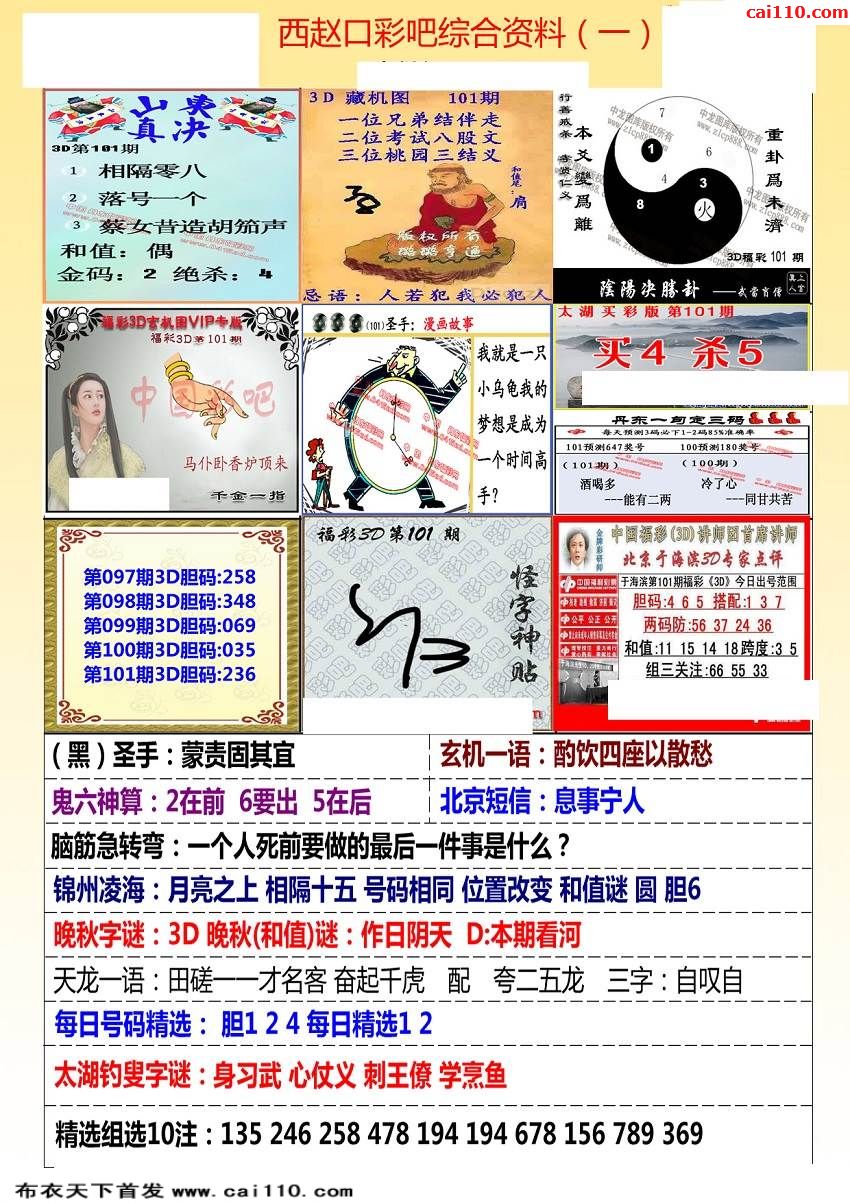 cai110.com
西赵口彩吧综合资料（一）
山東
真决
3D第101期
1 相隔零八
2 落号一个
3 蔡女昔造胡笳声
和值：偶
金码：2 绝杀：4
3D 藏机图 101期
一位兄弟结伴走
二位考试八股文
三位桃园三结义
和值尾：肩
版权所有
忌语：人若犯我必犯人
行善戒杀 苦贤仁义
本爻變爲離
重卦爲未濟
7
1
6
4
3
8
火
中龙图库版权所有
www.zlcp888.com
3D福彩101期
陰陽决勝卦 ——武當肖僧
福彩3D玄机图VIP专版
福彩3D第101期
中国彩吧
马仆卧香炉顶来
千金一指
(101)圣手：漫画故事
我就是一只
小乌龟我的
梦想是成为
一个时间高
手？
太湖买彩版 第101期
买4 杀5
丹东一句定三码
每天预测3码必下1-2码85%准确率
101预测647奖号 100预测180奖号
(101期) (100期)
酒喝多 冷了心
---能有二两 ---同甘共苦
第097期3D胆码:258
第098期3D胆码:348
第099期3D胆码:069
第100期3D胆码:035
第101期3D胆码:236
福彩3D第101 期
怪字神贴
金牌彩研师
中国福彩(3D)讲师团首席讲师
北京于海滨3D专家点评
中国福利彩票
于海滨第101期福彩《3D》今日出号范围
胆码:4 6 5 搭配:1 3 7
两码防:56 37 24 36
和值:11 15 14 18 跨度:3 5
组三关注:66 55 33
公平 公正 公开
（黑）圣手：蒙责固其宜
玄机一语：酌饮四座以散愁
鬼六神算：2在前 6要出 5在后
北京短信：息事宁人
脑筋急转弯：一个人死前要做的最后一件事是什么？
锦州凌海：月亮之上 相隔十五 号码相同 位置改变 和值谜 圆 胆6
晚秋字谜：3D 晚秋(和值)谜：作日阴天 D:本期看河
天龙一语：田磋一一才名客 奋起千虎 配 夸二五龙 三字：自叹自
每日号码精选： 胆1 2 4 每日精选1 2
太湖钓叟字谜：身习武 心仗义 刺王僚 学烹鱼
精选组选10注：135 246 258 478 194 194 678 156 789 369
布衣天下首发 www.cai110.com